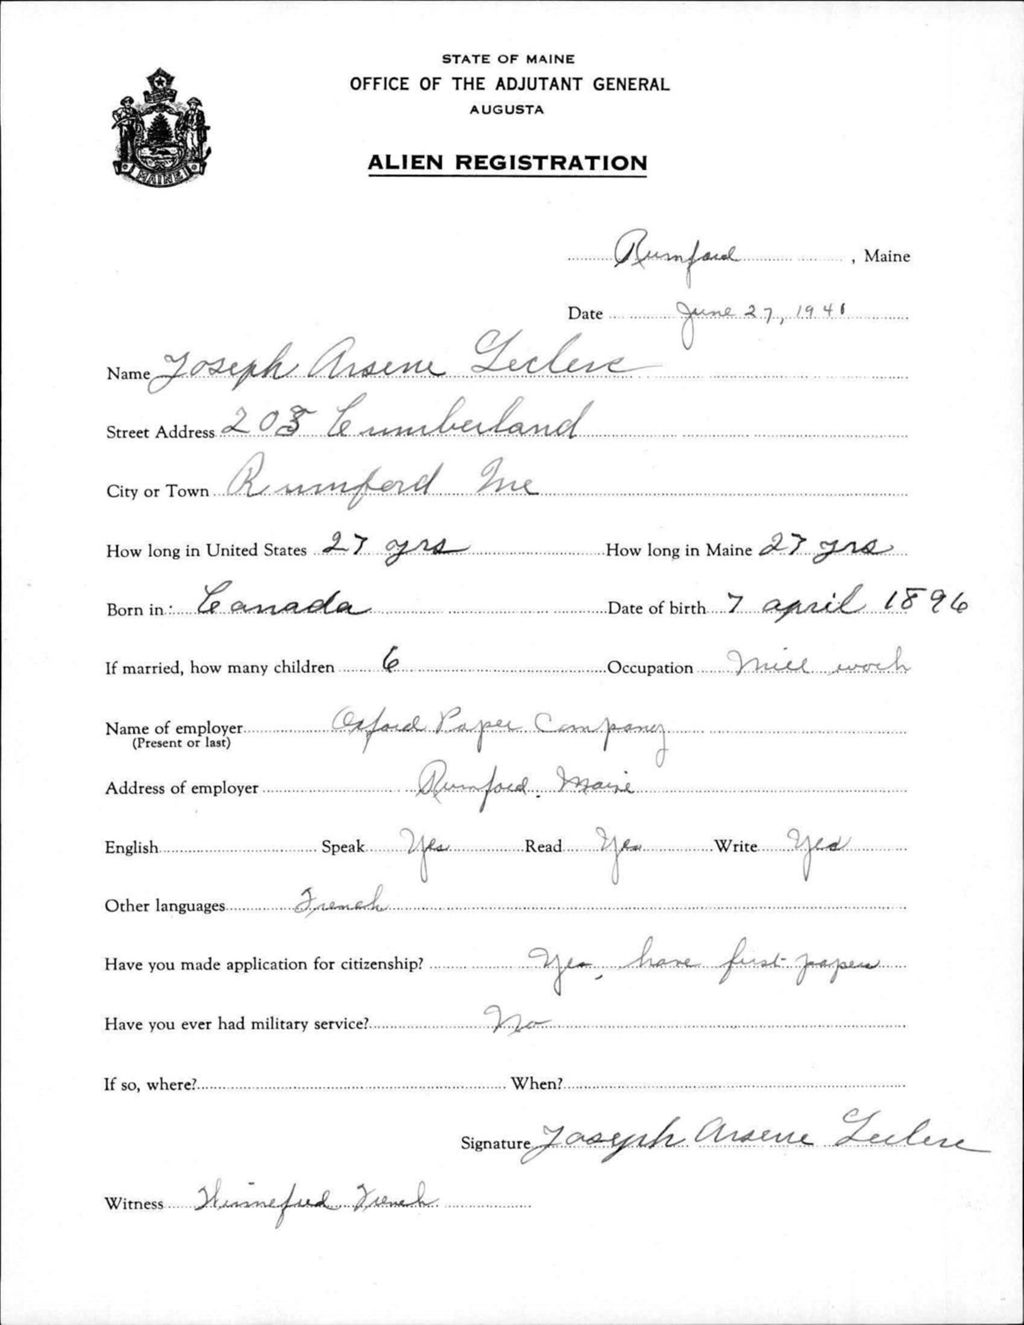 STATE OF MAINE
OFFICE OF THE ADJUTANT GENERAL
AUGUSTA
ALIEN REGISTRATION
MAINE
Rumford, Maine
Date June 27, 1941
Name Joseph Arsene Leclerc
Street Address 203 Cumberland
City or Town Rumford Me
How long in United States 27 yrs How long in Maine 27 yrs
Born in: Canada Date of birth 7 april 1896
If married, how many children 6 Occupation Mill work
Name of employer Oxford Paper Company
(Present or last)
Address of employer Rumford, Maine
English Speak Yes Read Yes Write Yes
Other languages French
Have you made application for citizenship? Yes, have first papers
Have you ever had military service? No
If so, where? When?
Signature Joseph Arsene Leclerc
Witness Winnefred French